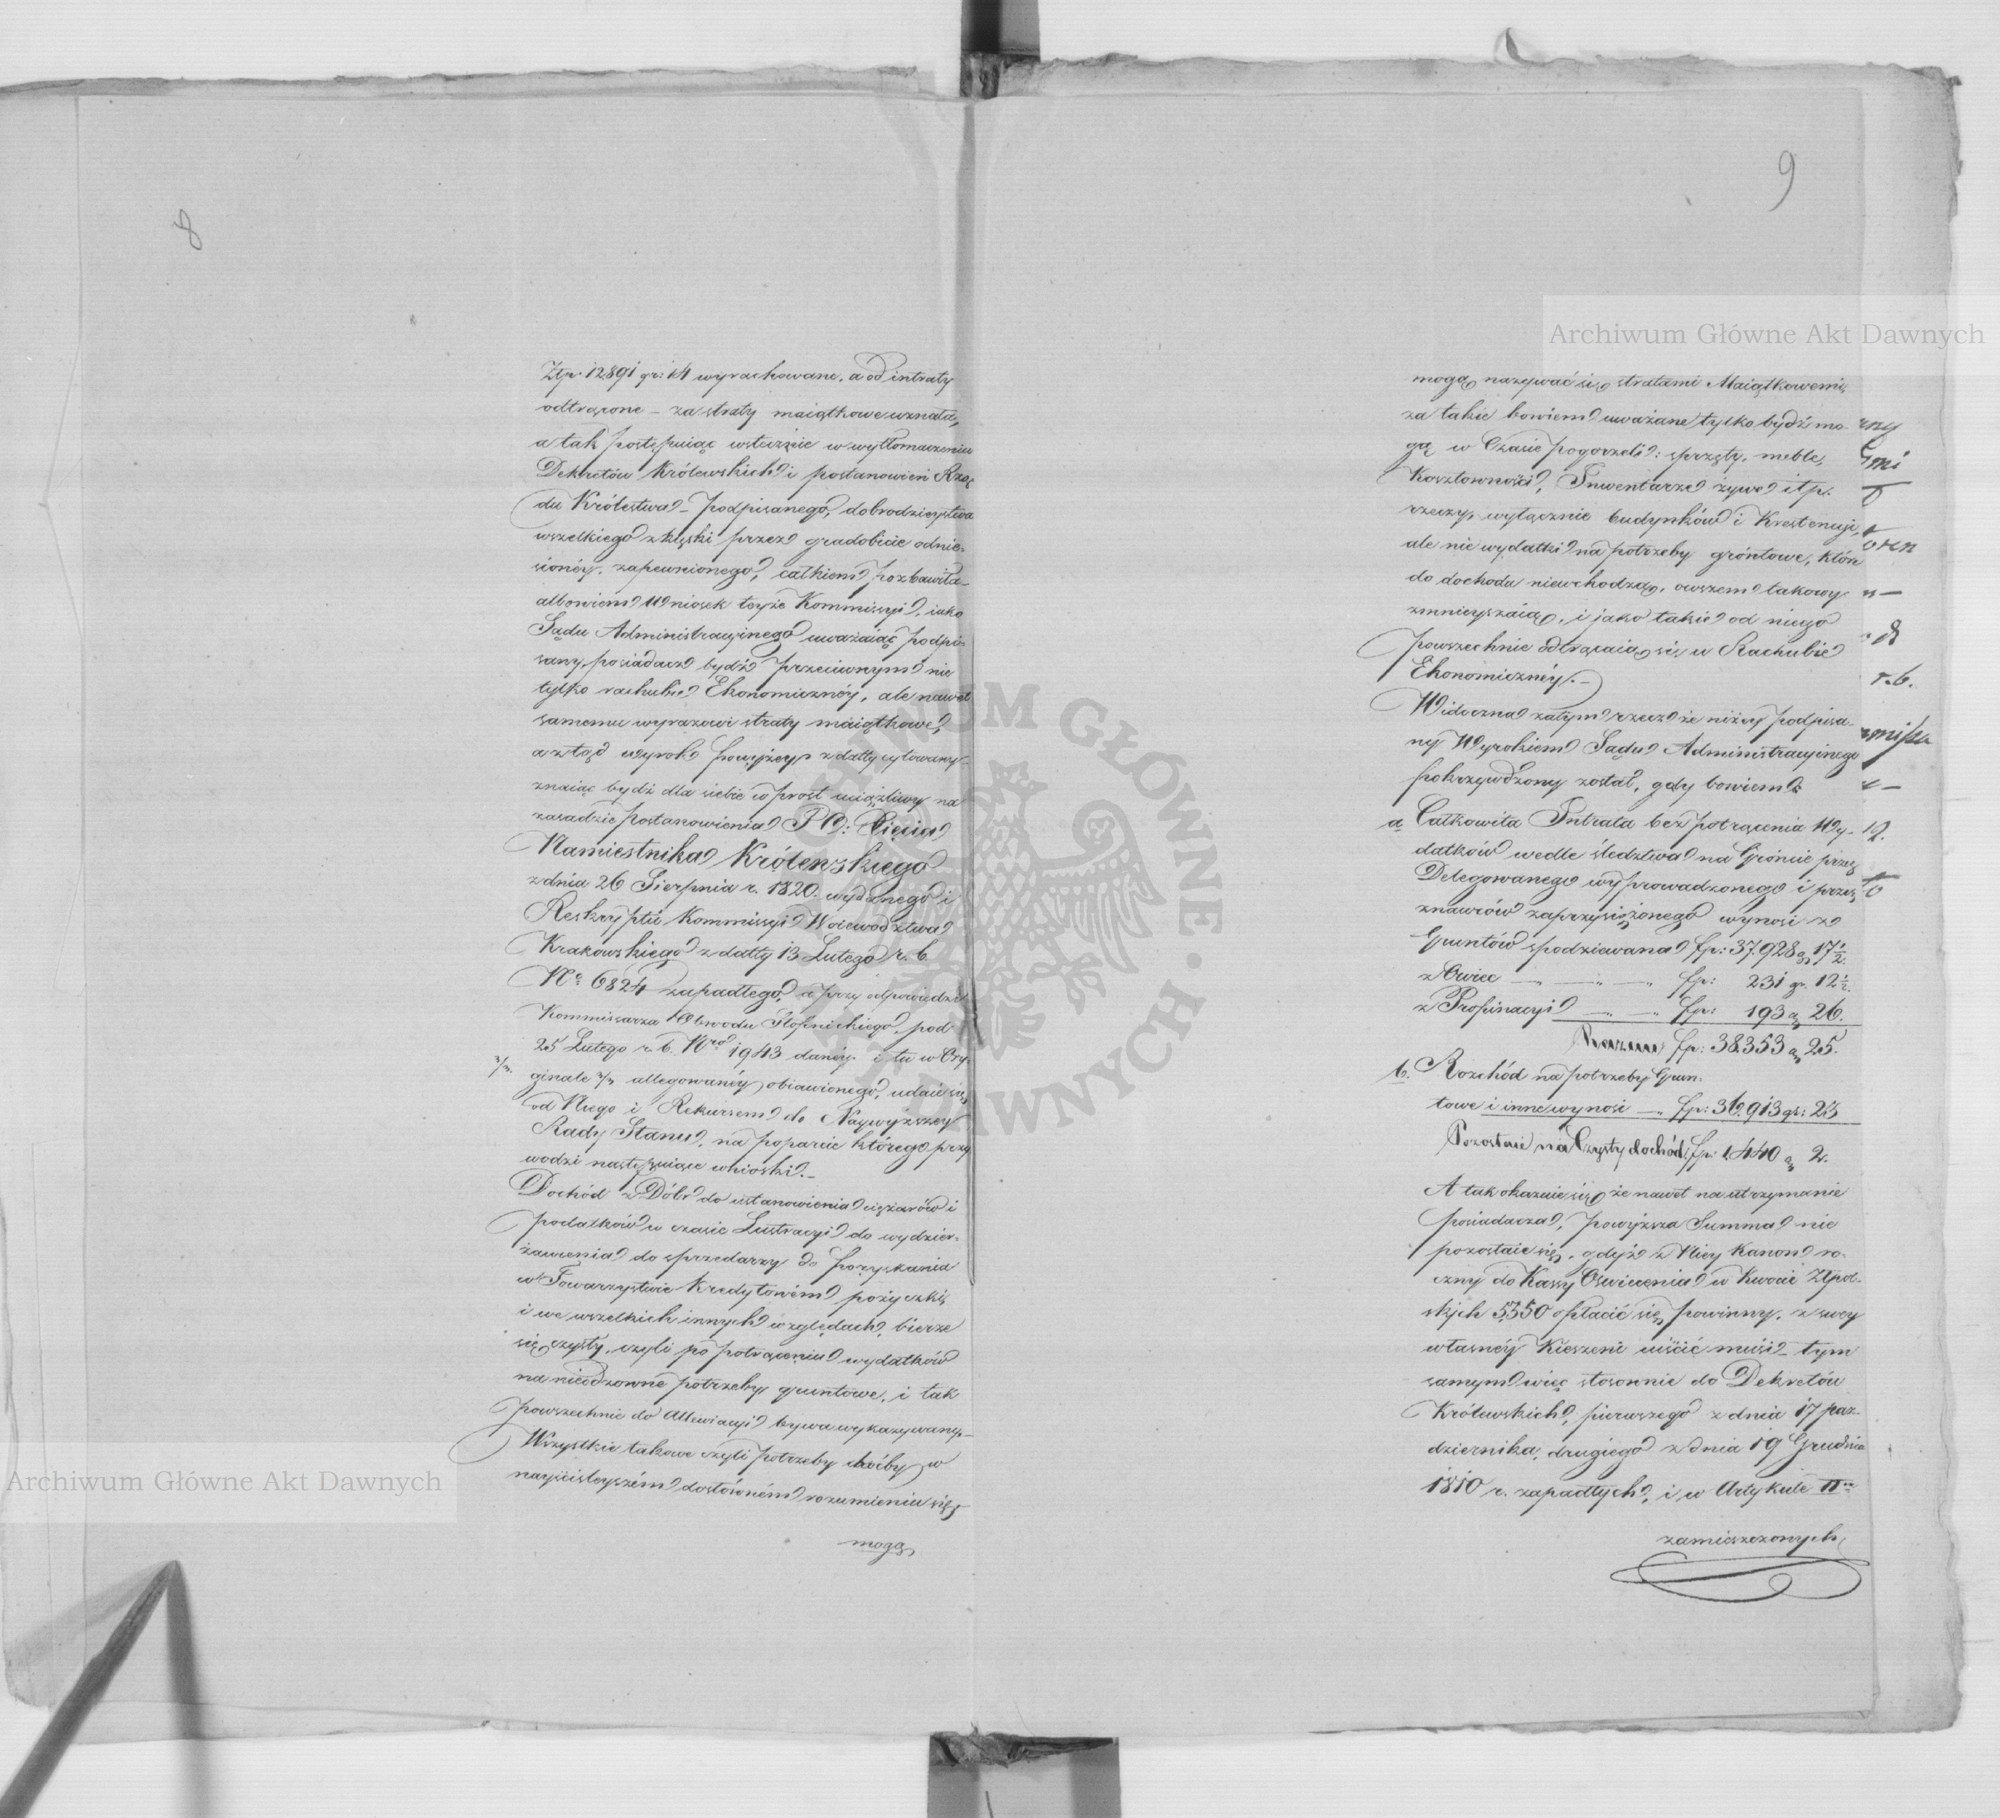 8
Złp. 12891 gr: 14 wyrachowane, a od intraty
odtrącone – za straty maiątkowe uznała,
a tak postępuiąc wstecznie w wytłomaczeniu
Dekretów Królewskich i postanowień Rzą-
du Królestwa – podpisanego, dobrodzieystwa
wszelkiego z klęski przez gradobicie odnie-
sionéy, zapewnionego, całkiem pozbawiła –
albowiem Wniosek teyże Kommissyi, iako
Sądu Administracyinego uważaiąc podpi-
sany posiadacz bydź przeciwnym nie
tylko rachubie Ekonomicznéy, ale nawet
samemu wyrazowi straty maiątkowe,
a ztąd wyrok powyżey z datty cytowany
znaiąc bydź dla siebie wprost uciążliwy na
zasadzie postanowienia JO: Xięcia
Namiestnika Królewskiego
z dnia 26 Sierpnia r. 1820. wydanego i
Reskryptu Kommissyi Woiewództwa
Krakowskiego z datty 13 Lutego r. b.
Nro 6824 zapadłego, a przy odpowiedzi
Kommissarza Obwodu Stopnickiego, pod
25 Lutego r. b. Nro 1943 danéy i tu w Ory-
ginale allegowanéy obiawionego, udaie się
od Niego i Rekursem do Naywyższey
Rady Stanu, na poparcie którego przy
wodzi następuiące wnioski. –
Dochód z Dóbr do ustanowienia ciężarów i
podatków w czasie Lustracyi do wydzier-
żawienia do sprzedarzy do pozyskania
w Towarzystwie Kredytowem pożyczki
i we wszelkich innych względach, bierze
się czysty, czyli po potrąceniu wydatków
na nieodzowne potrzeby gruntowe, i tak
powszechnie do Allewiacyi bywa wykazywany –
Wszystkie takowe czyli potrzeby choćby w
nayściśleyszém dosłowném rozumieniu się
mogą
9
mogą nazywać się stratami Maiątkowemi,
za takie bowiem uważane tylko bydź mo-
gą w Czasie pogorzeli: sprzęty, meble,
Kosztowności, Inwentarze żywe itp.
rzeczy, wyłącznie budynków i Krestencyi,
ale nie wydatki na potrzeby gróntowe, które
do dochodu niewchodzą, owszem takowy
zmnieyszaią, i jako takie od niego
powszechnie odtrącaią się w Rachubie
Ekonomicznéy. –
Widoczna zatym rzecz że niżey podpisa-
ny Wyrokiem Sądu Administracyinego
pokrzywdzony został, gdy bowiem
a Całkowita Intrata bez potrącenia Wy-
datków wedle śledztwa na Gróncie przez
Delegowanego wyprowadzonego i przez
znawców zaprzysiężonego wynosi z
Gruntów spodziewana fp: 37,928 gr 17 1/2.
z Owiec — — — fp: 231 gr. 12 1/2.
z Propinacyi — — fp: 193 gr 26.
Razem fp: 38353 gr 25.
b. Rozchód na potrzeby Grun-
towe i inne wynosi — fp: 36,913 gr: 23
Pozostaie na Czysty dochód fp: 1,440 gr 2.
A tak okazuie się że nawet na utrzymanie
posiadacza, powyższa Summa nie
pozostaie się, gdyż z Niey Kanon ro-
czny do Kassy Oświecenia w Kwocie Złpol-
skich 5,350 opłacić się powinny, z swey
własnéy Kieszeni uiścić musi – tym
samym więc stosownie do Dekretów
Królewskich, pierwszego z dnia 17 paź-
dziernika, drugiego z dnia 19 Grudnia
1810 r. zapadłych, i w Artykule II
zamieszczonych
Archiwum Główne Akt Dawnych
Archiwum Główne Akt Dawnych